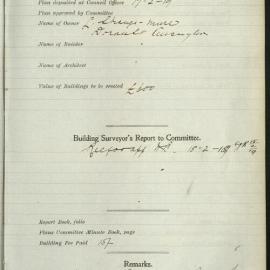 Plan deposited at Council Offices 17-2-19
Plan approved by Committee
Name of Owner
Name of Builder
Name of Architect
Value of Buildings to be erected £600
Building Surveyor's Report to Committee.
18-2-19
Report Book, folio
Plans Committee Minute Book, page
Building Fee Paid 15/-
Remarks.